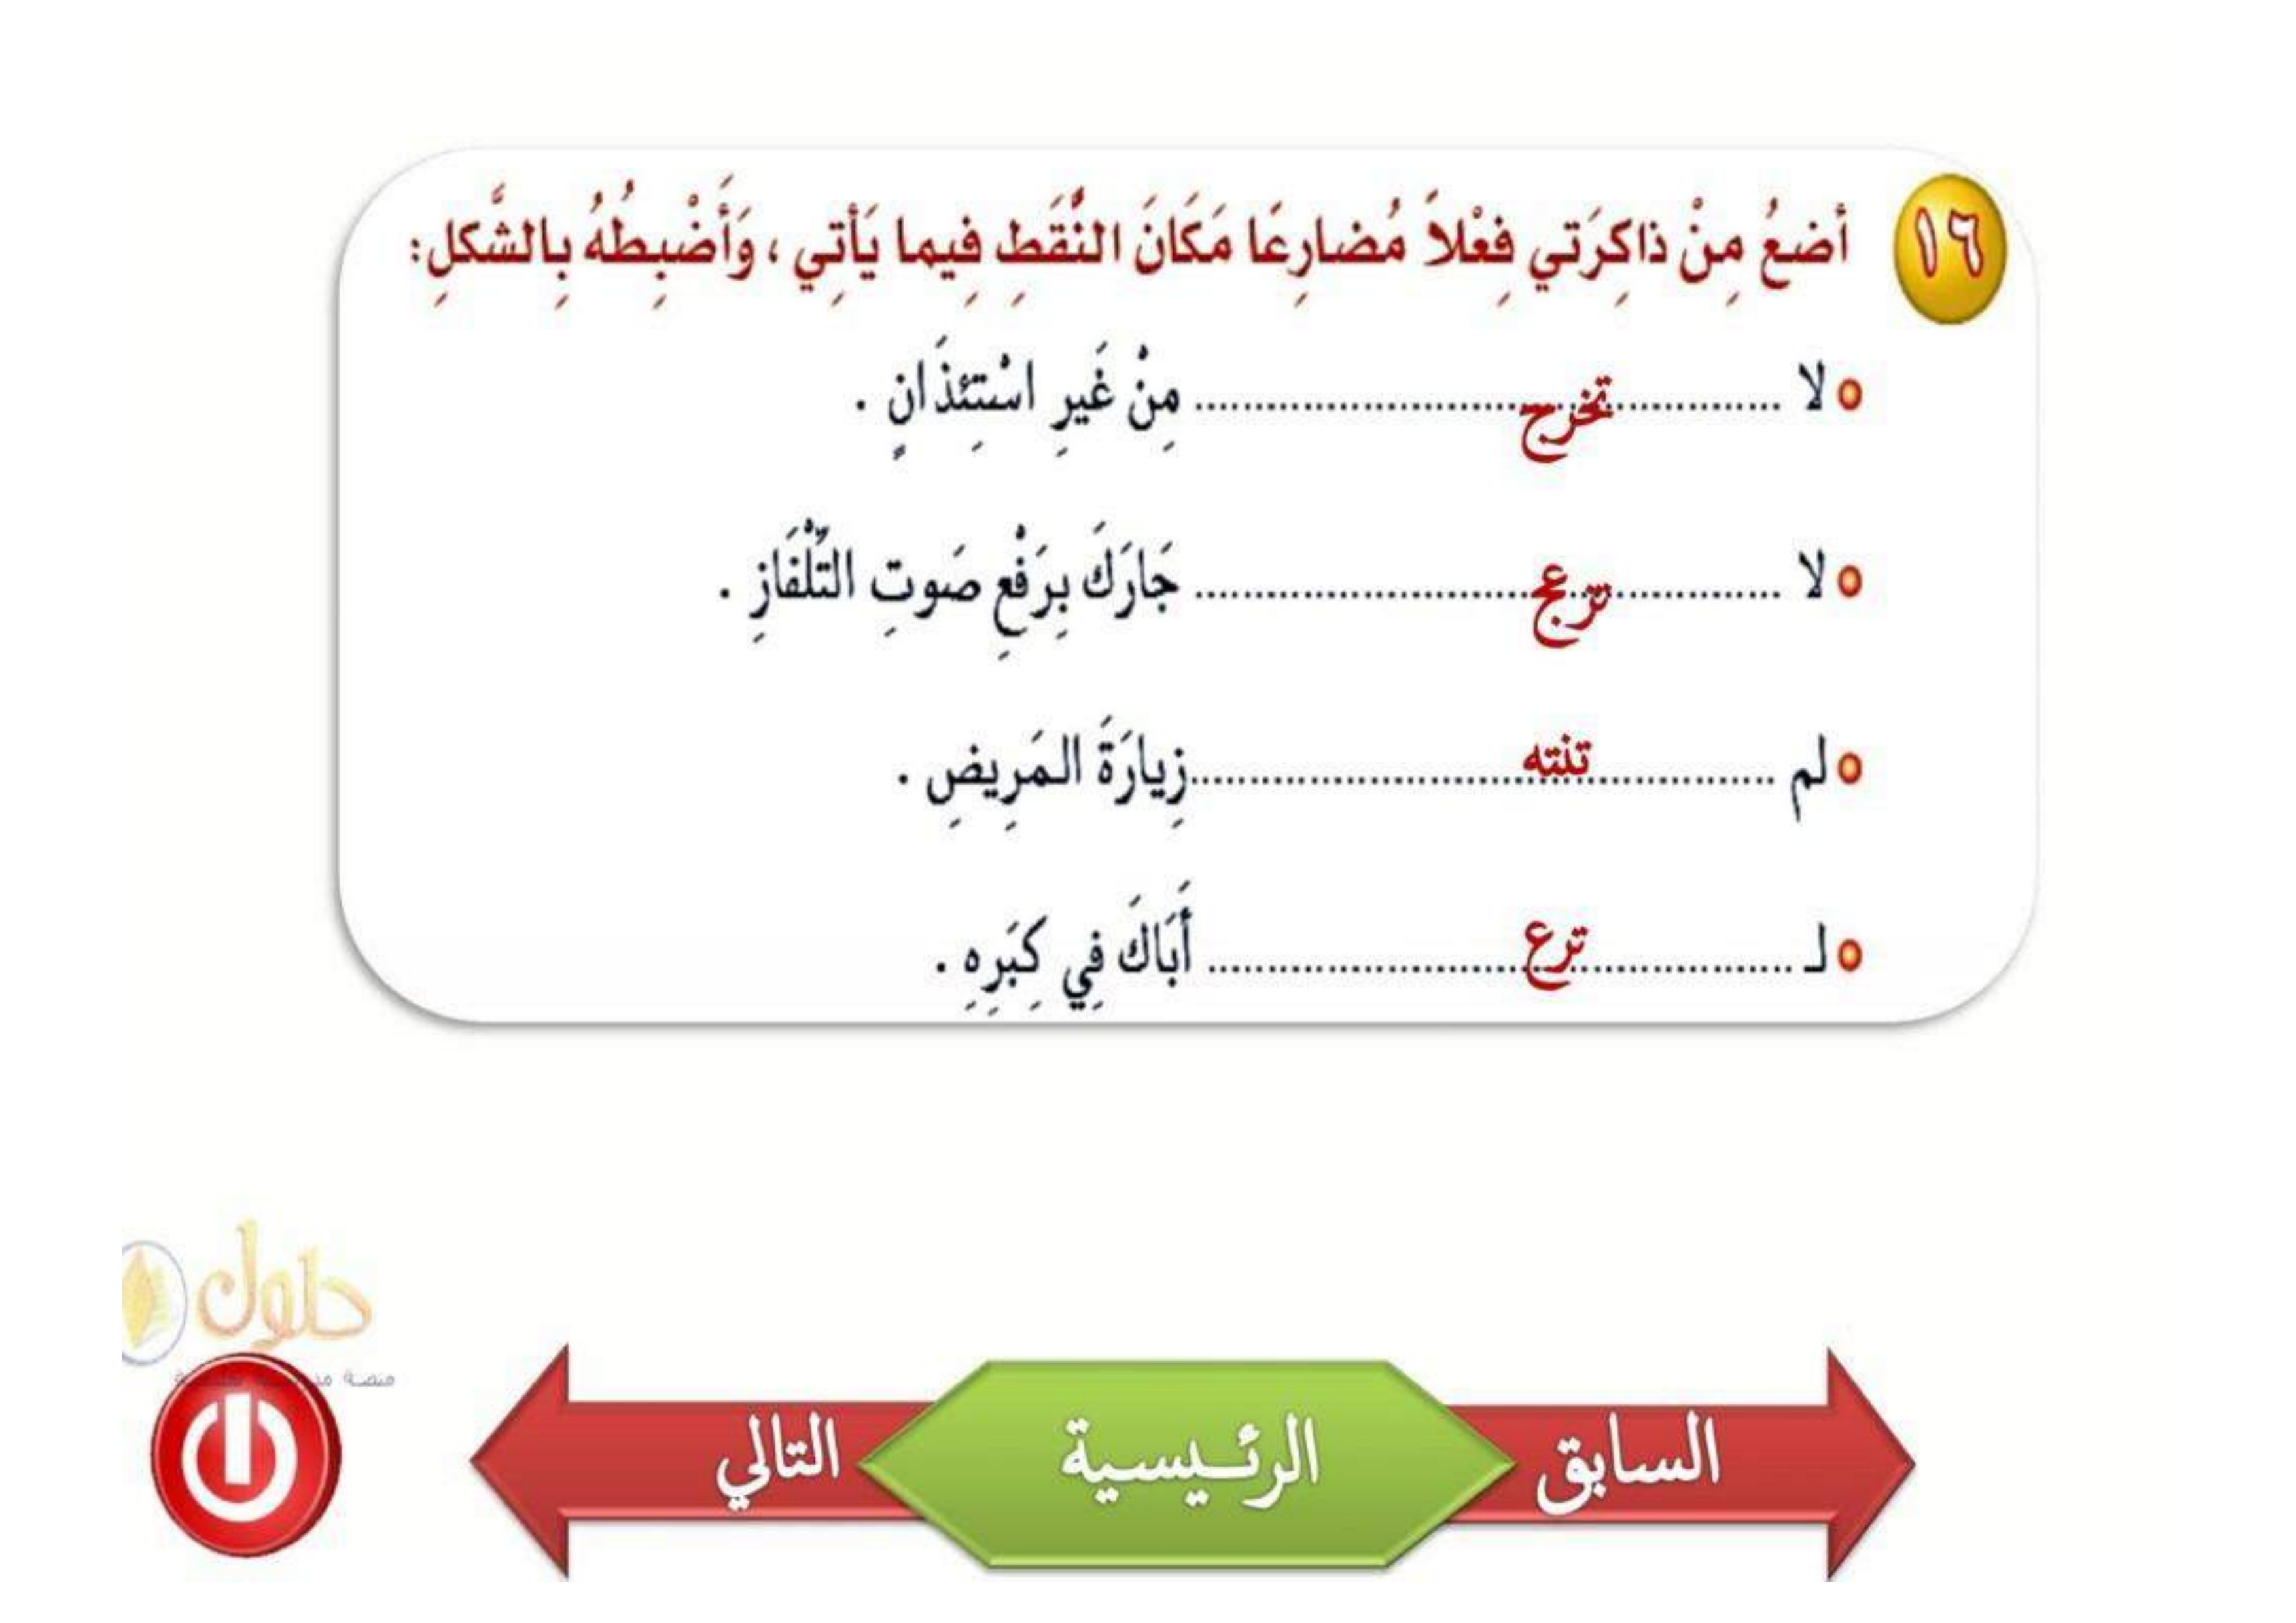 ١٦ أضعُ مِنْ ذاكِرَتي فِعْلاً مُضارِعًا مَكَانَ النُّقَطِ فِيما يَأتِي ، وَأَضْبِطُهُ بِالشَّكلِ :
لا ........ تخرج ........ مِنْ غَيرِ اسْتِئذَانٍ .
لا ........ تزعج ........ جَارَكَ بِرَفْعِ صَوتِ التِّلْفَازِ .
لم ........ تنته ........ زِيارَةَ المَرِيضِ .
لـ ........ ترع ........ أَبَاكَ فِي كِبَرِهِ .
حلول
منصة
السابق
الرئيسية
التالي